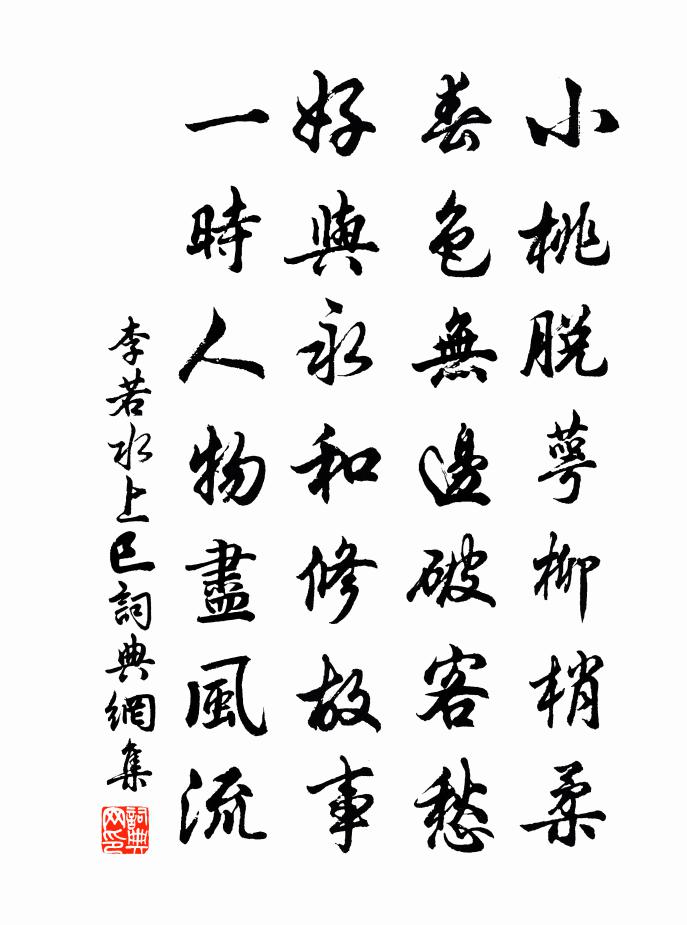 小桃脫萼柳梢柔
春色無邊破客愁
好與永和修故事
一時人物盡風流
李若水上巳詞典網集
詞典网印